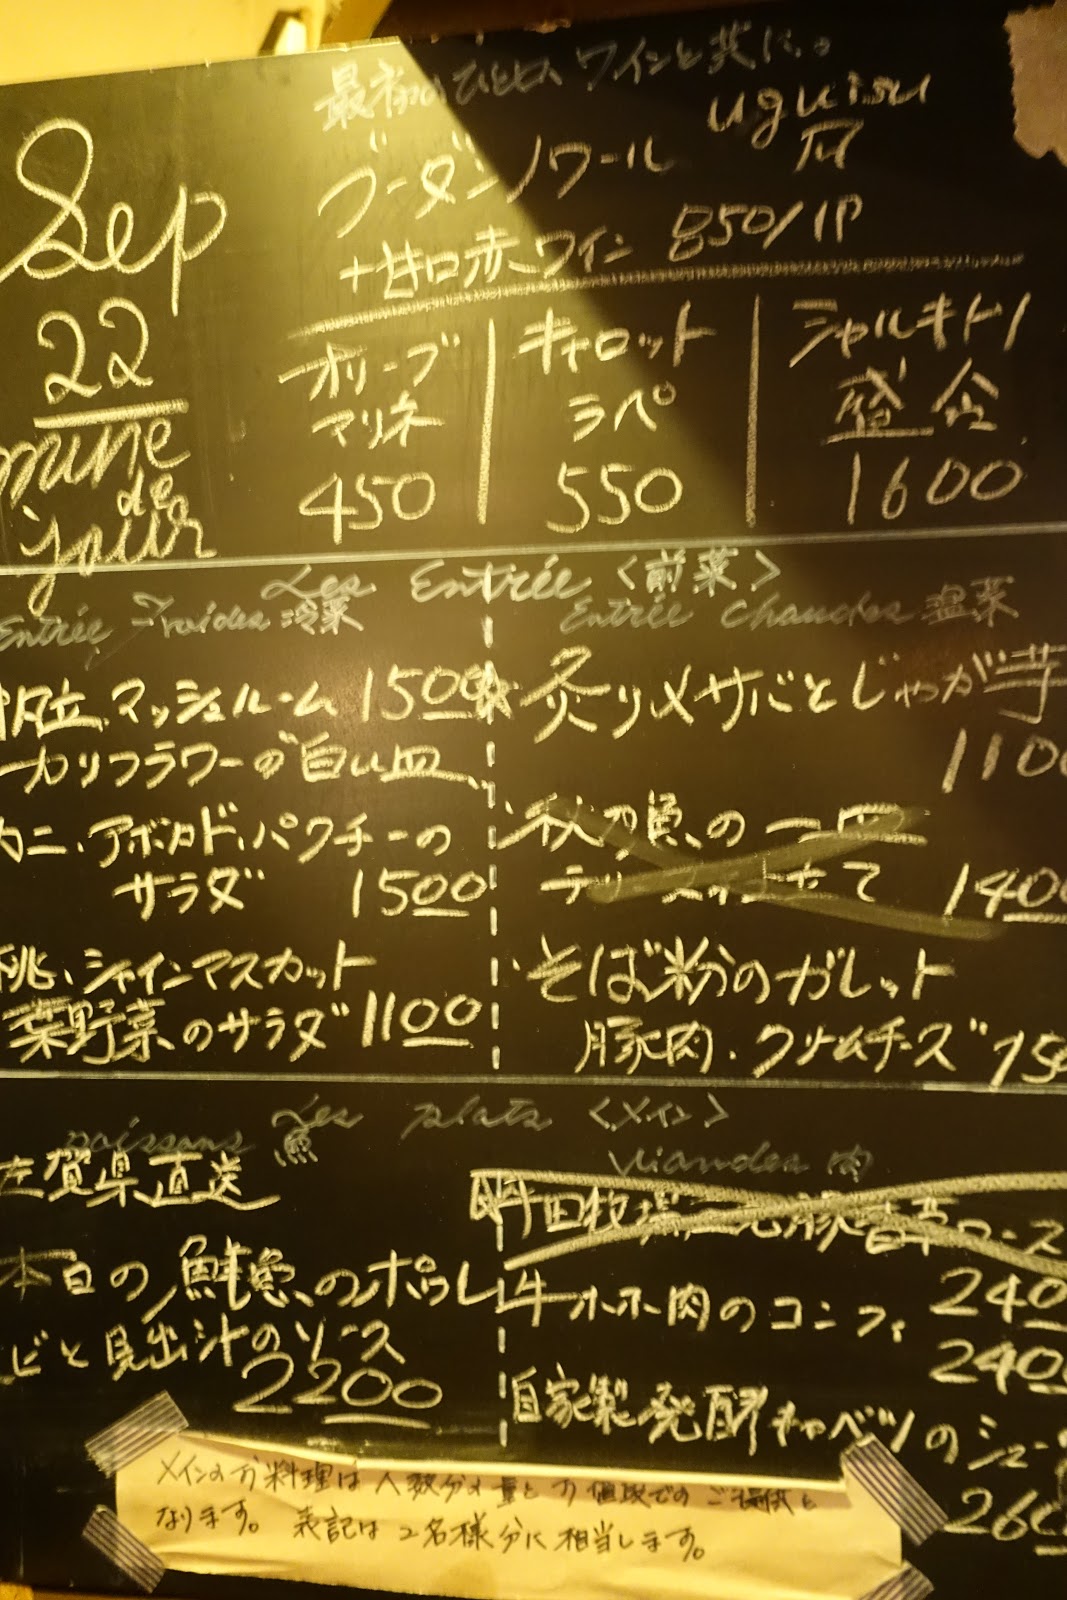 最初のひと口、ワインと共に。
uguisu
ブーダンノワール
+甘口赤ワイン 850/1P
Sep
22
menu
de
jour
オリーブ
マリネ
450
キャロット
ラペ
550
シャルキトリ
盛合
1600
Les Entrée 〈前菜〉
Entrée Froides 冷菜
帆立、マッシュルーム 1500
カリフラワーの白い皿
カニ、アボカド、パクチーの
サラダ 1500
桃、シャインマスカット
葉野菜のサラダ 1100
Entrée Chaudes 温菜
炙り〆サバとじゃが芋
1100
秋刀魚の一皿
1400
そば粉のガレット
豚肉、クリームチーズ 150
Les plats 〈メイン〉
poissons 魚
佐賀県直送
本日の鮮魚のポワレ
エビと見出汁のソース
2200
Viandes 肉
2400
牛ホホ肉のコンフィ
2400
自家製発酵キャベツのシュー
260
メインのお料理は人数分の量とお値段でのご提供と
なります。 表記は2名様分に相当します。